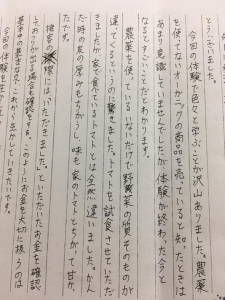 とうございました。
今回の体験で色々と学ぶことが沢山ありました。農薬
を使てないオーガニクの商品を売ていると知ったときは
あまり意識していませんでしたが体験が終わった今と
なるとすごいことだとわかります。
農薬を使っている いないだけで野菜の質そのものが
違ってくるというのに驚きました。トマトを試食させていただ
きましたが家で食べているトマトとは全然違いました。かん
だ時の皮の厚みもちがうし、味も家のトマトとちがって甘か
たです。
接客の際に「いただきました。」といただいたお金を確認
しておつりが出る場合も確認をする。このようにお金を大切に扱うのは
基本中の基本なのでこれからも生かして行きたいです。
今回の体験を